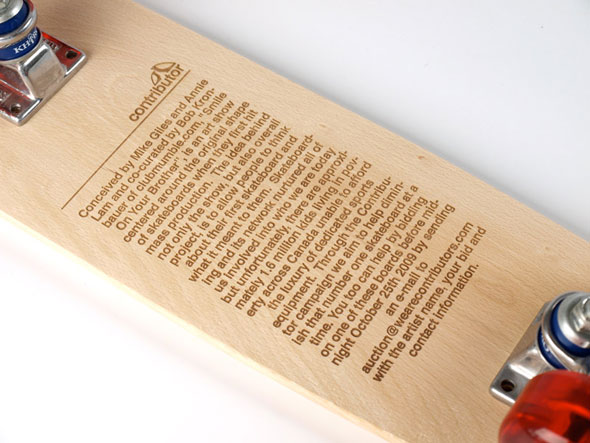 KHIRO
contributor
Conceived by Mike Giles and Annie
Lam and co-curated by Bob Kron-
bauer of clubmumble.com, "Smile
On Your Brother" is an art show
centered around the original shape
of skateboards when they first hit
mass production. The idea behind
not only the show, but also overall
project, is to allow people to think
about their first skateboard and
what it meant to them. Skateboard-
ing and its network nurtured all of
us involved into who we are today,
but unfortunately, there are approxi-
mately 1.6 million kids living in pov-
erty across Canada unable to afford
the luxury of dedicated sports
equipment. Through the Contribu-
tor campaign we aim to help dimin-
ish that number one skateboard at a
time. You too can help by bidding
on one of these boards before mid-
night October 25th 2009 by sending
an e-mail to
auction@wearecontributors.com
with the artist name, your bid and
contact information.